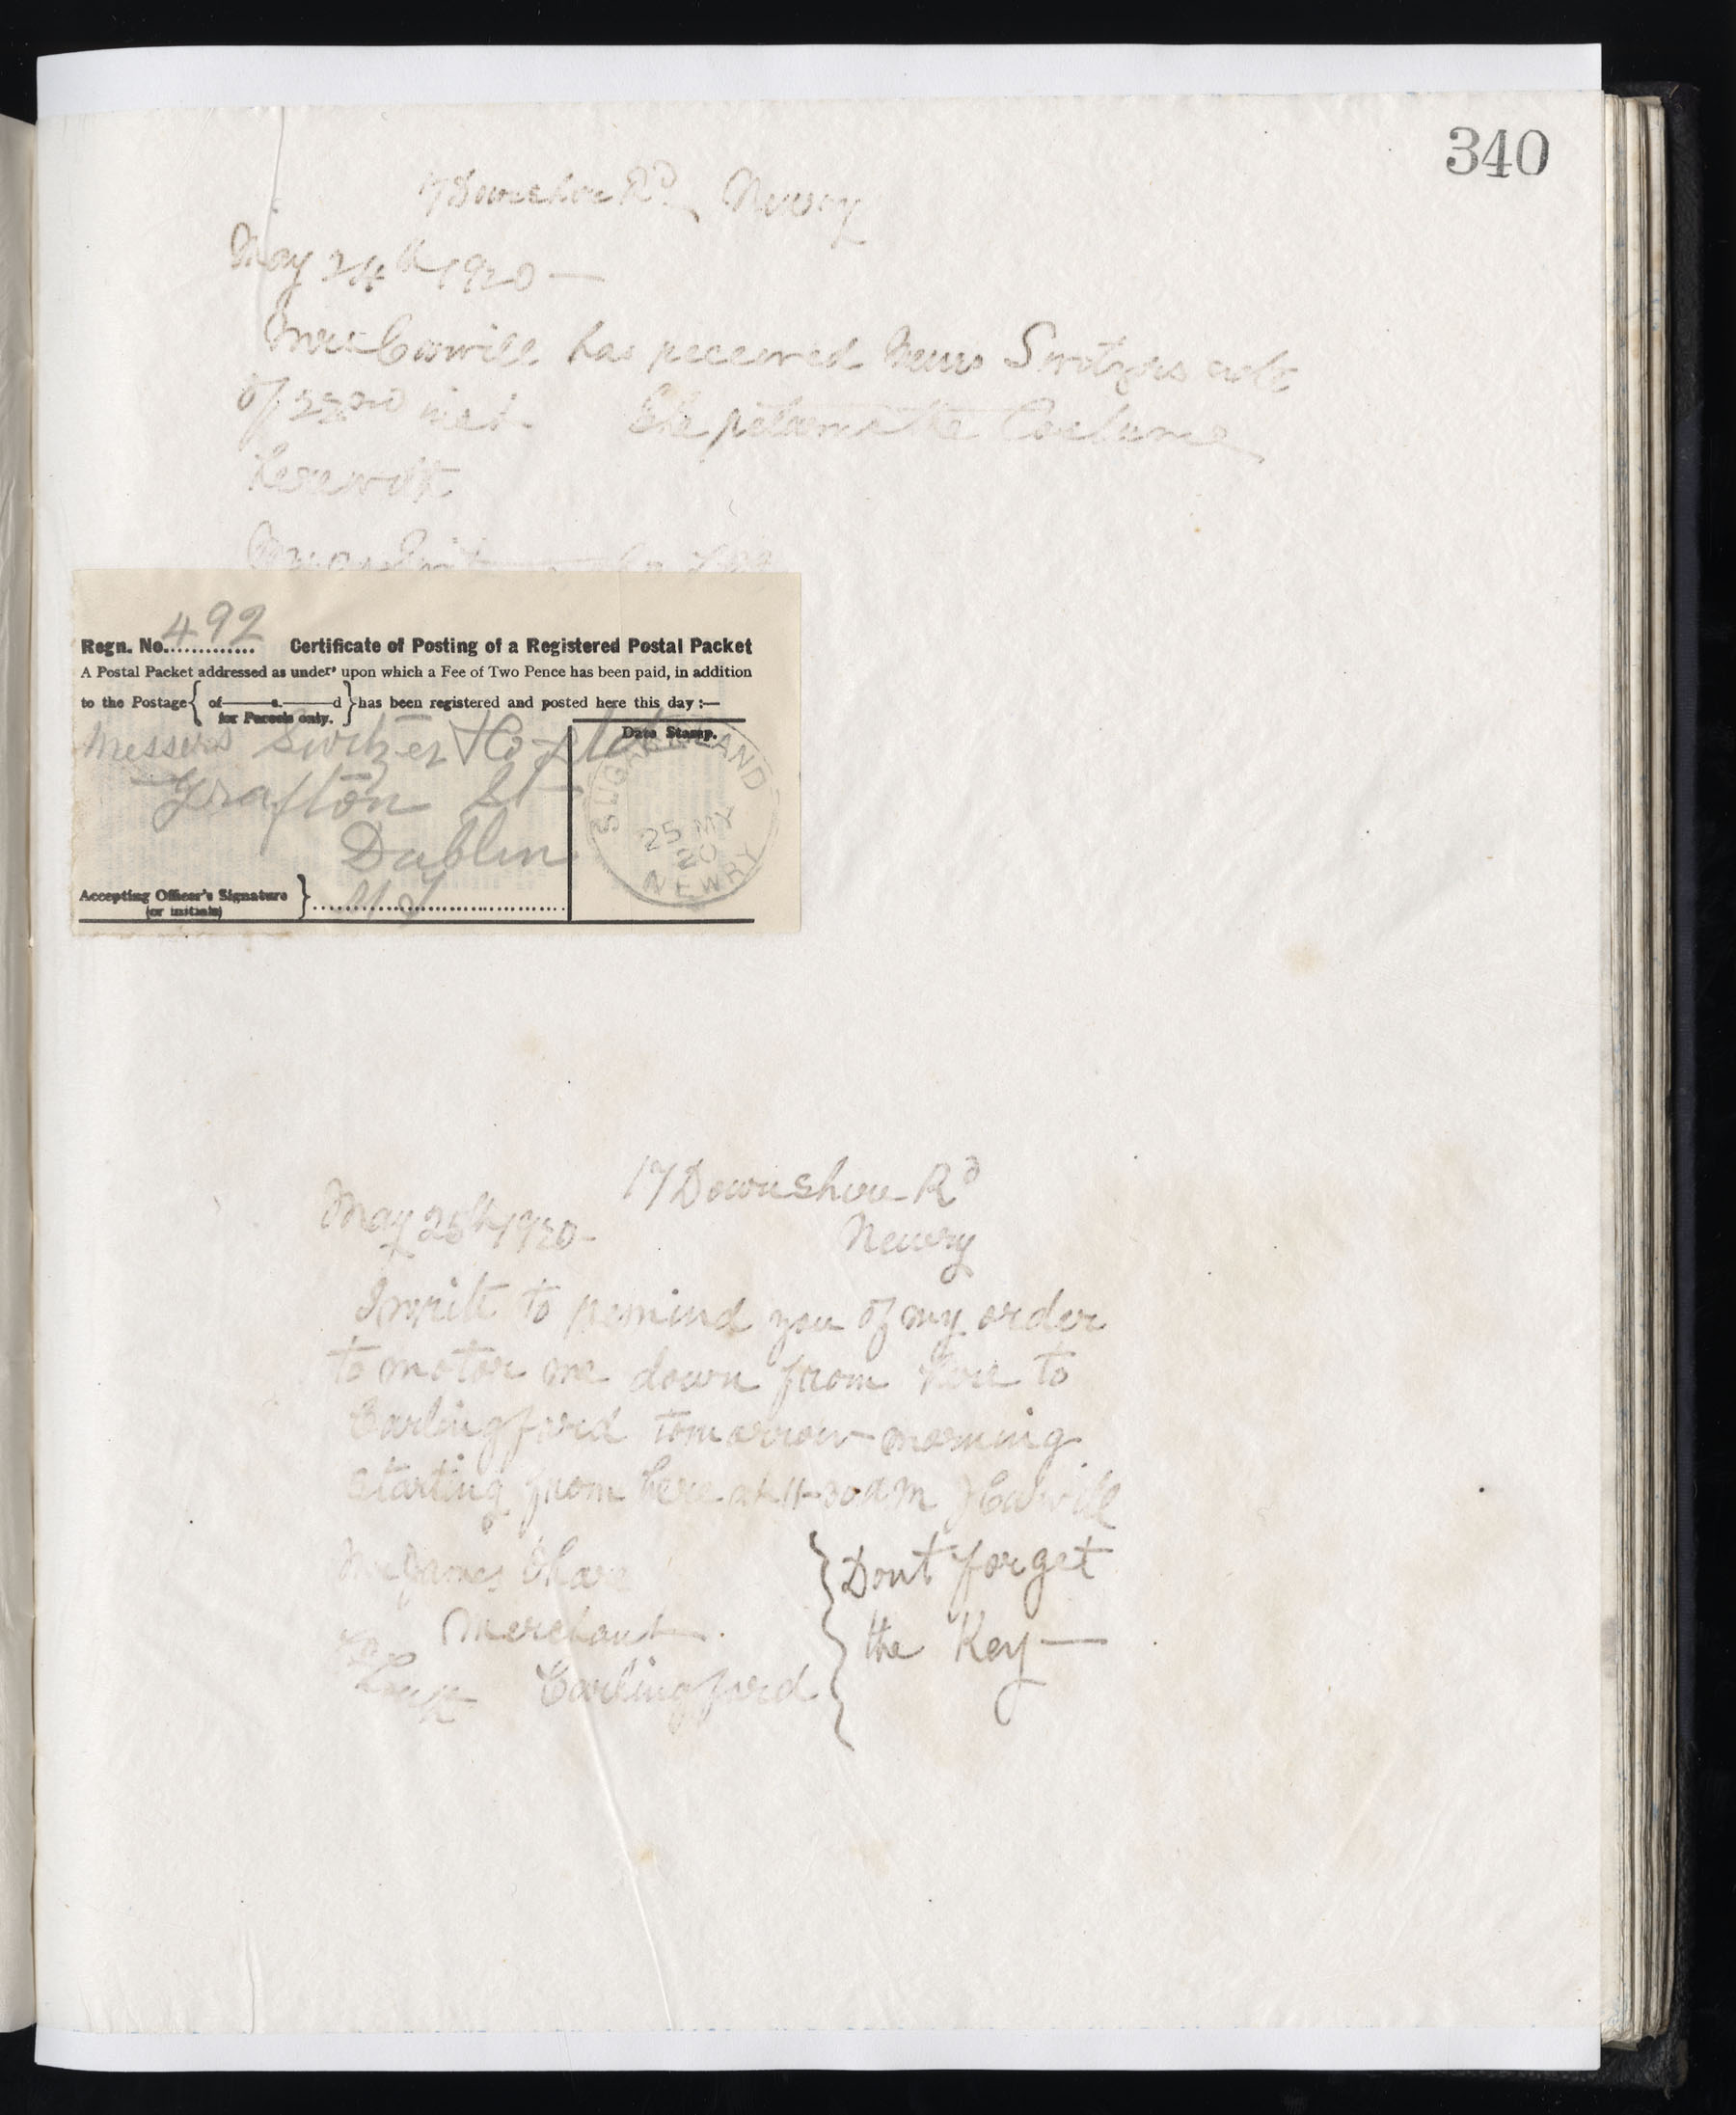 340
17 Downshire Rd. Newry
May 24th 1920 —
has received Messrs Switzers note
of 22nd inst. She returns the Costume
herewith
Regn. No. 492 Certificate of Posting of a Registered Postal Packet
A Postal Packet addressed as under upon which a Fee of Two Pence has been paid, in addition
to the Postage { of — s. — d } has been registered and posted here this day :—
for Parcels only.
Date Stamp.
Messrs Switzer & Co Ltd
Grafton St
Dublin
25 MY
20
NEWRY
Accepting Officer's Signature }
(or initials)
17 Downshire Rd
May 25th 1920-
Newry
I write to remind you of my order
to motor me down from here to
Carlingford tomorrow morning
starting from here at 11-30 am
Mr James
Merchant.
Carlingford
} Dont forget
the Key —